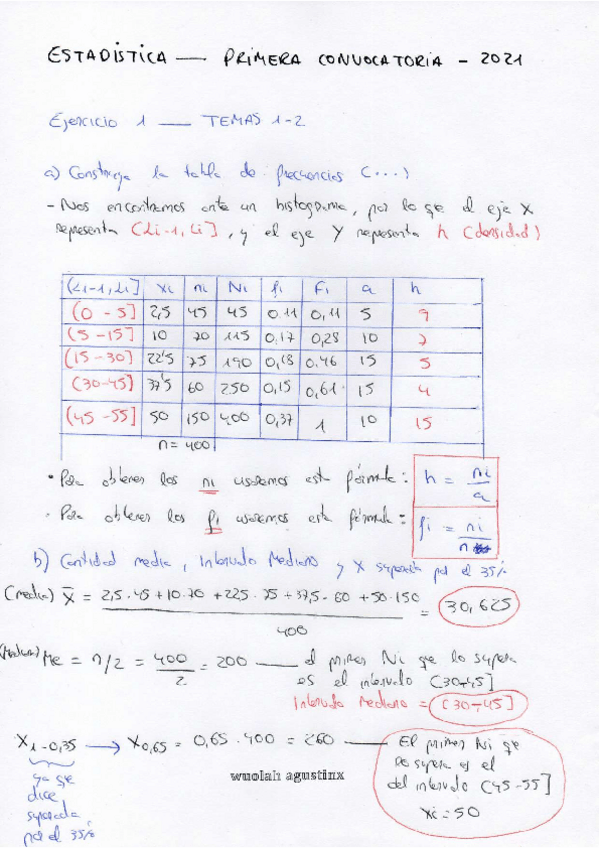 ESTADÍSTICA — PRIMERA CONVOCATORIA - 2021
Ejercicio 1 — TEMAS 1-2
a) Construya la tabla de frecuencias (...)
- Nos encontramos ante un histograma, por lo que el eje X
representa (Li-1, Li], y el eje Y representa h (densidad)
(Li-1, Li] xi ni Ni fi Fi a h
(0 - 5] 2,5 45 45 0.11 0,11 5 9
(5 - 15] 10 70 115 0,17 0,28 10 7
(15 - 30] 22'5 75 190 0,18 0,46 15 5
(30-45] 37'5 60 250 0,15 0,61 15 4
(45 - 55] 50 150 400 0,37 1 10 15
n = 400
· Para obtener los ni usaremos esta fórmula: h = ni/a
· Para obtener los fi usaremos esta fórmula: fi = ni/n
b) Cantidad media, Intervalo Mediano y X superada por el 35%
(media) x̄ = 2,5·45 + 10·70 + 225·75 + 37,5·60 + 50·150 / 400 = 30,625
(Mediana) Me = n/2 = 400/2 = 200 — el primer Ni que lo supera
es el intervalo (30-45]
Intervalo Mediano = (30-45]
X1-0,35 → X0,65 = 0,65 · 400 = 260 — El primer Ni que
lo supera es el
del intervalo (45-55]
xi = 50
ya que
dice
superada
por el 35%
wuolah agustinx